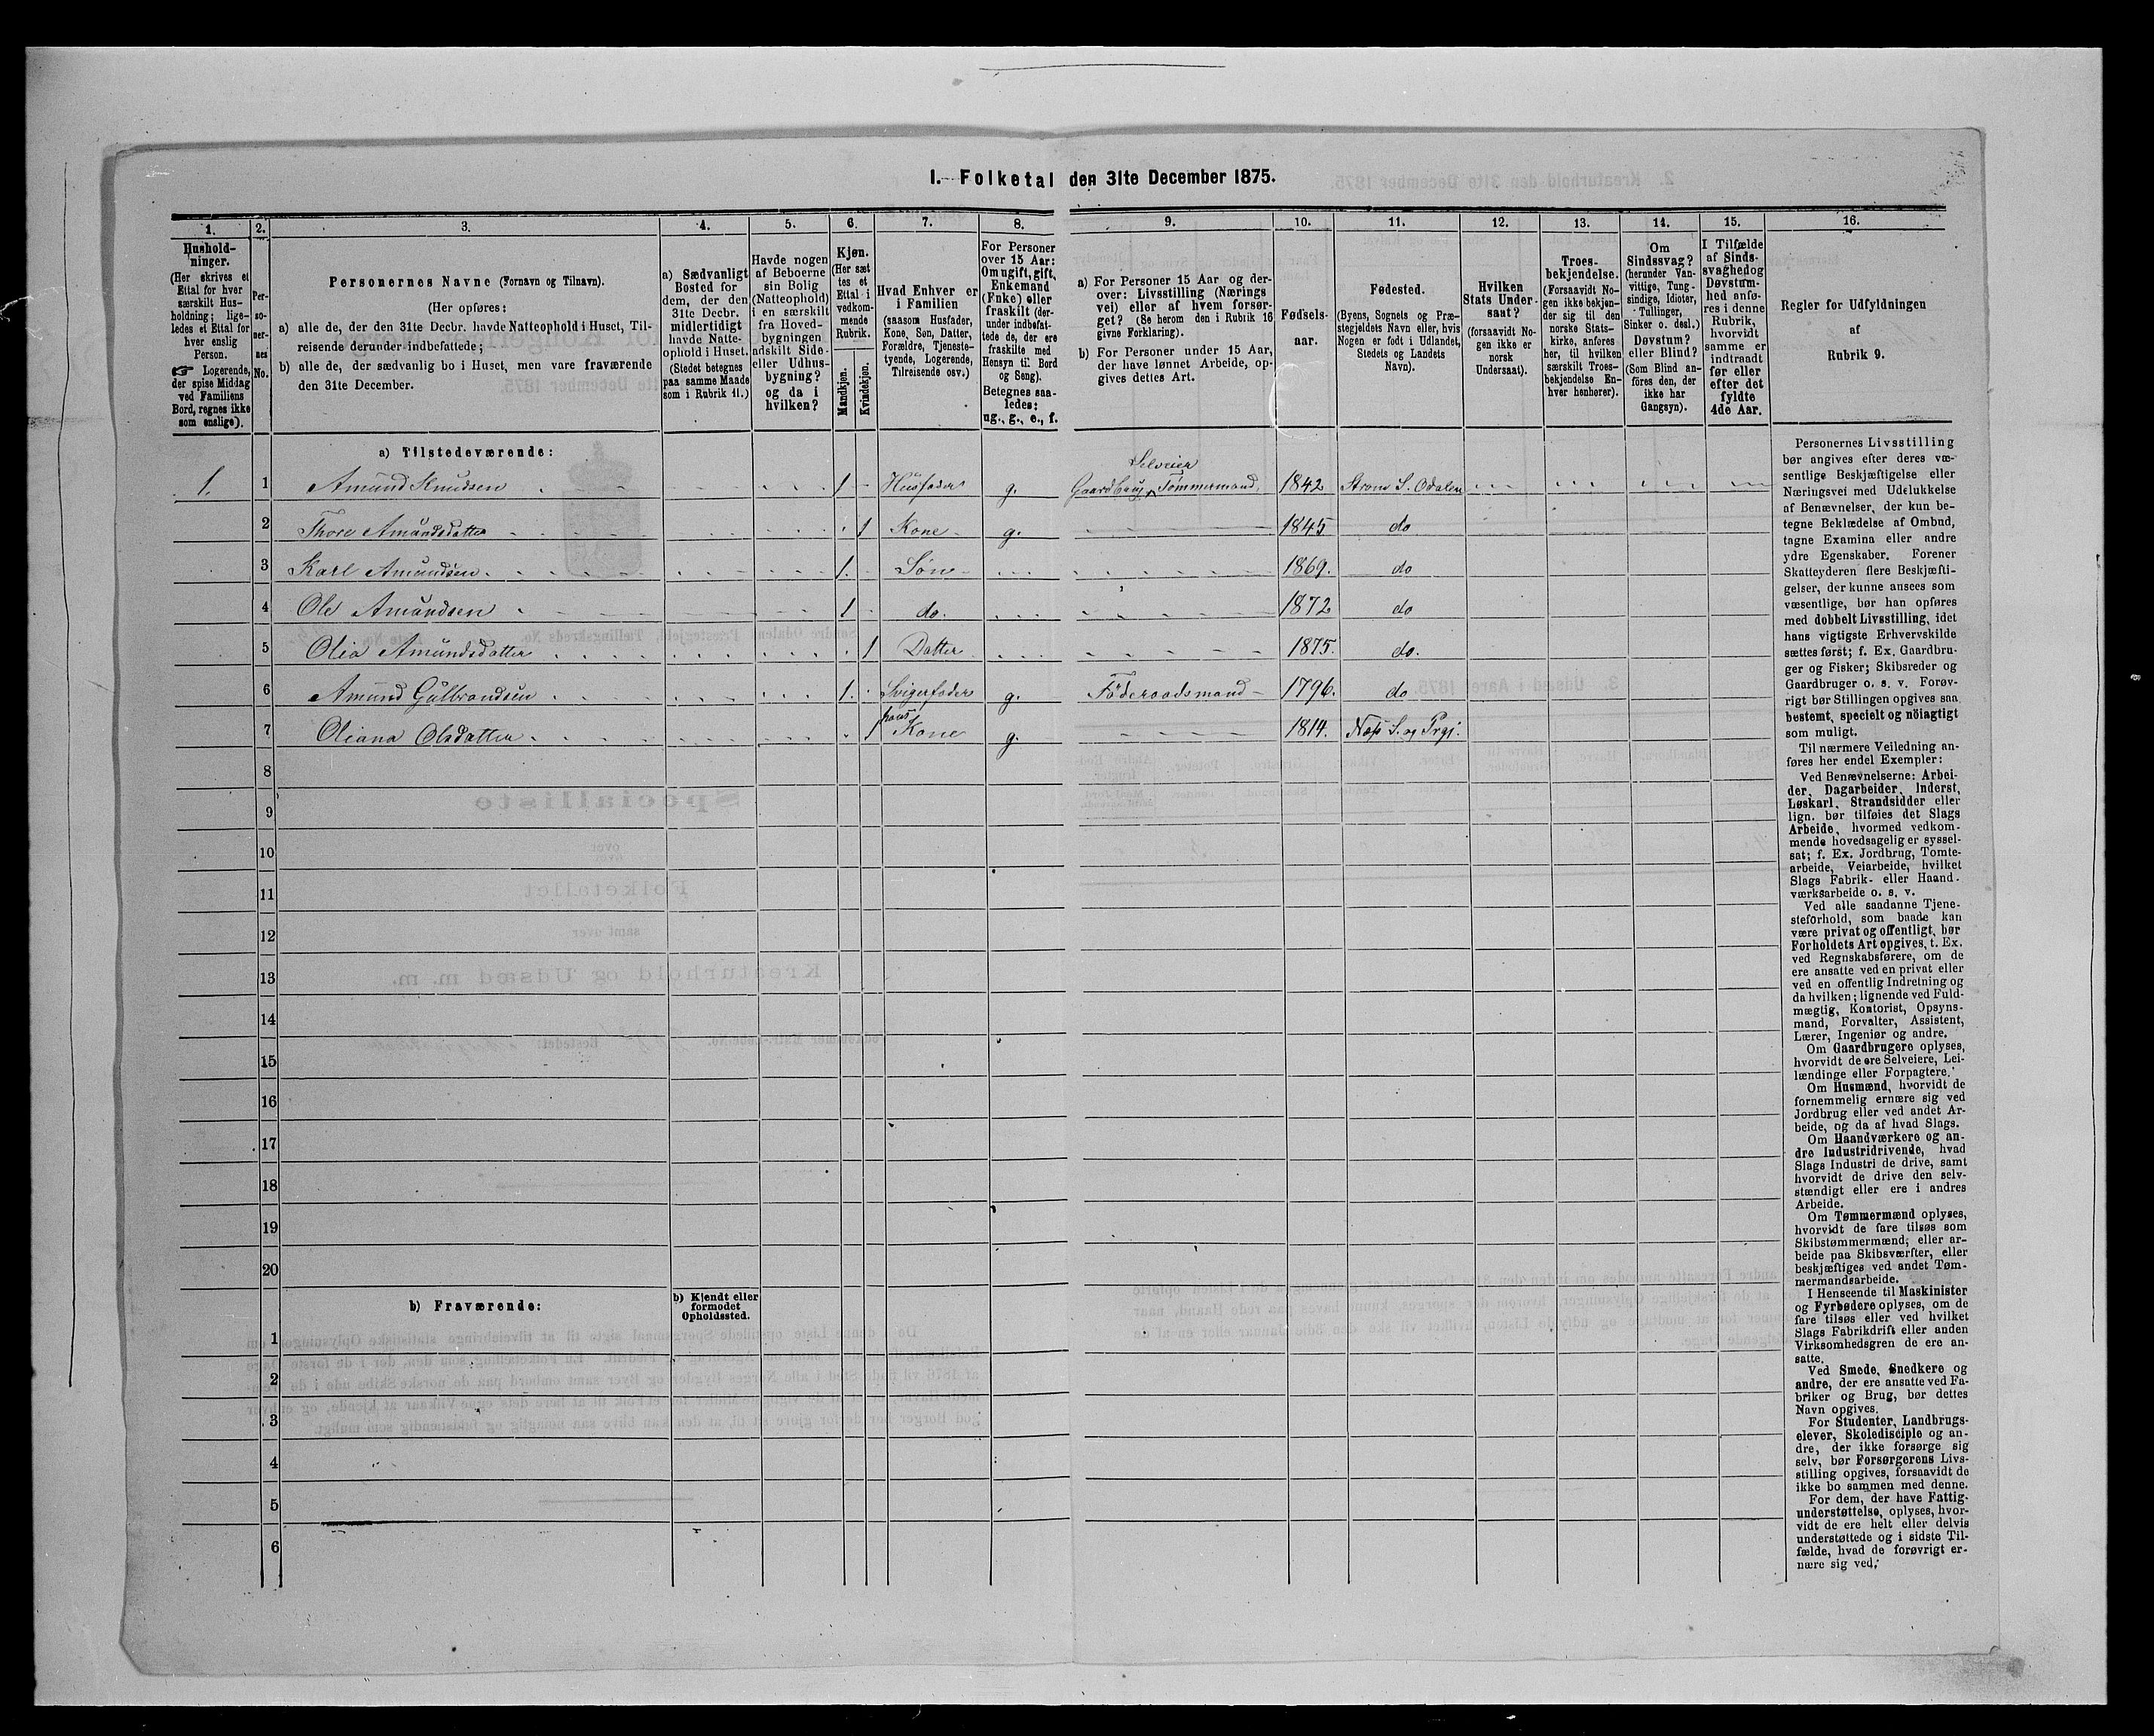 I. Folketal den 31te December 1875.
1. 2. 3. 4. 5. 6. 7. 8. 9. 10. 11. 12. 13. 14. 15. 16.
Hushold-
ninger.
(Her skrives et
Ettal for hver
særskilt Hus-
holdning; lige-
ledes et Ettal for
hver enslig
Person.
☞ Logerende,
der spise Middag
ved Familiens
Bord, regnes ikke
som enslige).
Per-
so-
ner-
nes
No.
Personernes Navne (Fornavn og Tilnavn).
(Her opføres:
a) alle de, der den 31te Decbr. havde Natteophold i Huset, Til-
reisende derunder indbefattede;
b) alle de, der sædvanlig bo i Huset, men vare fraværende
den 31te December.
a) Sædvanligt
Bosted for
dem, der den
31te Decbr.
midlertidigt
havde Natte-
ophold i Huset.
(Stedet betegnes
paa samme Maade
som i Rubrik 11.)
Havde nogen
af Beboerne
sin Bolig
(Natteophold)
i en særskilt
fra Hoved-
bygningen
adskilt Side-
eller Udhus-
bygning?
og da i
hvilken?
Kjøn.
(Her sæt
tes et
Ettal i
vedkom-
mende
Rubrik.
Mandkjøn.
Kvindekjøn.
Hvad Enhver er
i Familien
(saasom Husfader,
Kone, Søn, Datter,
Forældre, Tjeneste-
tyende, Logerende,
Tilreisende osv.)
For Personer
over 15 Aar:
Om ugift, gift,
Enkemand
(Enke) eller
fraskilt (der-
under indbefat-
tede de, der ere
fraskilte med
Hensyn til Bord
og Seng).
Betegnes saa-
ledes:
ug., g., e., f.
a) For Personer 15 Aar og der-
over: Livsstilling (Nærings
vei) eller af hvem forsør-
get? (Se herom den i Rubrik 16
givne Forklaring).
b) For Personer under 15 Aar,
der have lønnet Arbeide, op-
gives dettes Art.
Fødsels-
aar.
Fødested.
(Byens, Sognets og Præ-
stegjeldets Navn eller, hvis
Nogen er født i Udlandet,
Stedets og Landets
Navn).
Hvilken
Stats Under-
saat?
(forsaavidt No-
gen ikke er
norsk
Undersaat).
Troes-
bekjendelse.
(Forsaavidt No-
gen ikke bekjen-
der sig til den
norske Stats-
kirke, anføres
her, til hvilken
særskilt Troes-
bekjendelse En-
hver henhører).
Om
Sindssvag?
(herunder Van-
vittige, Tung-
sindige, Idioter,
Tullinger,
Sinker o. desl.)
Døvstum?
eller Blind?
(Som Blind an-
føres den, der
ikke har
Gangsyn).
I Tilfælde
af Sinds-
svaghed og
Døvstum-
hed anfø-
res i denne
Rubrik,
hvorvidt
samme er
indtraadt
før eller
efter det
fyldte
4de Aar.
Regler for Udfyldningen
af
Rubrik 9.
a) Tilstedeværende:
Selveier
1. 1 Amund Knudsen 1 Husfader g. Gaardbrug, Tømmermand 1842 Strøm S. Odalen
2 Thore Amundsdatter 1 Kone g. 1845 do
3 Karl Amundsen 1. Søn 1869. do
4 Ole Amundsen 1 do. 1872 do
5 Olia Amundsdatter 1 Datter 1875. do.
6 Amund Gulbrandsen 1. Svigerfader g. Föderaadsmand 1796. do
7 Oliana Olsdatter 1 hans Kone g. 1814. Næs S. og Prgj.
8
9
10
11
12
13
14
15
16
17
18
19
20
b) Fraværende:
b) Kjendt eller
formodet
Opholdssted.
1
2
3
4
5
6
Personernes Livsstilling
bør angives efter deres væ-
sentlige Beskjæftigelse eller
Næringsvei med Udelukkelse
af Benævnelser, der kun be-
tegne Beklædelse af Ombud,
tagne Examina eller andre
ydre Egenskaber. Forener
Skatteyderen flere Beskjæfti-
gelser, der kunne ansees som
væsentlige, bør han opføres
med dobbelt Livsstilling, idet
hans vigtigste Erhvervskilde
sættes først; f. Ex. Gaardbru-
ger og Fisker; Skibsreder og
Gaardbruger o. s. v. Forøv-
rigt bør Stillingen opgives saa
bestemt, specielt og nöiagtigt
som muligt.
Til nærmere Veiledning an-
føres her endel Exempler:
Ved Benævnelserne: Arbei-
der, Dagarbeider, Inderst,
Løskarl, Strandsidder eller
lign. bør tilføies det Slags
Arbeide, hvormed vedkom-
mende hovedsagelig er syssel-
sat; f. Ex. Jordbrug, Tomte-
arbeide, Veiarbeide, hvilket
Slags Fabrik- eller Haand-
værksarbeide o. s. v.
Ved alle saadanne Tjene-
steforhold, som baade kan
være privat og offentligt, bør
Forholdets Art opgives, t. Ex.
ved Regnskabsførere, om de
ere ansatte ved en privat eller
ved en offentlig Indretning og
da hvilken; lignende ved Fuld-
mægtig, Kontorist, Opsyns-
mand, Forvalter, Assistent,
Lærer, Ingeniør og andre.
Om Gaardbrugere oplyses,
hvorvidt de ere Selveiere, Lei-
lændinge eller Forpagtere.
Om Husmænd, hvorvidt de
fornemmelig ernære sig ved
Jordbrug eller ved andet Ar-
beide, og da af hvad Slags.
Om Haandværkere og an-
dre Industridrivende, hvad
Slags Industri de drive, samt
hvorvidt de drive den selv-
stændigt eller ere i andres
Arbeide.
Om Tømmermænd oplyses,
hvorvidt de fare tilsøs som
Skibstømmermænd, eller ar-
beide paa Skibsværfter, eller
beskjæftiges ved andet Tøm-
mermandsarbeide.
I Henseende til Maskinister
og Fyrbødere oplyses, om de
fare tilsøs eller ved hvilket
Slags Fabrikdrift eller anden
Virksomhedsgren de ere an-
satte.
Ved Smede, Snedkere og
andre, der ere ansatte ved Fa-
briker og Brug, bør dettes
Navn opgives.
For Studenter, Landbrugs-
elever, Skoledisciple og an-
dre, der ikke forsørge sig
selv, bør Forsørgerens Livs-
stilling opgives, forsaavidt de
ikke bo sammen med denne.
For dem, der have Fattig-
understøttelse, oplyses, hvor-
vidt de ere helt eller delvis
understøttede og i sidste Til-
fælde, hvad de forøvrigt er-
nære sig ved.